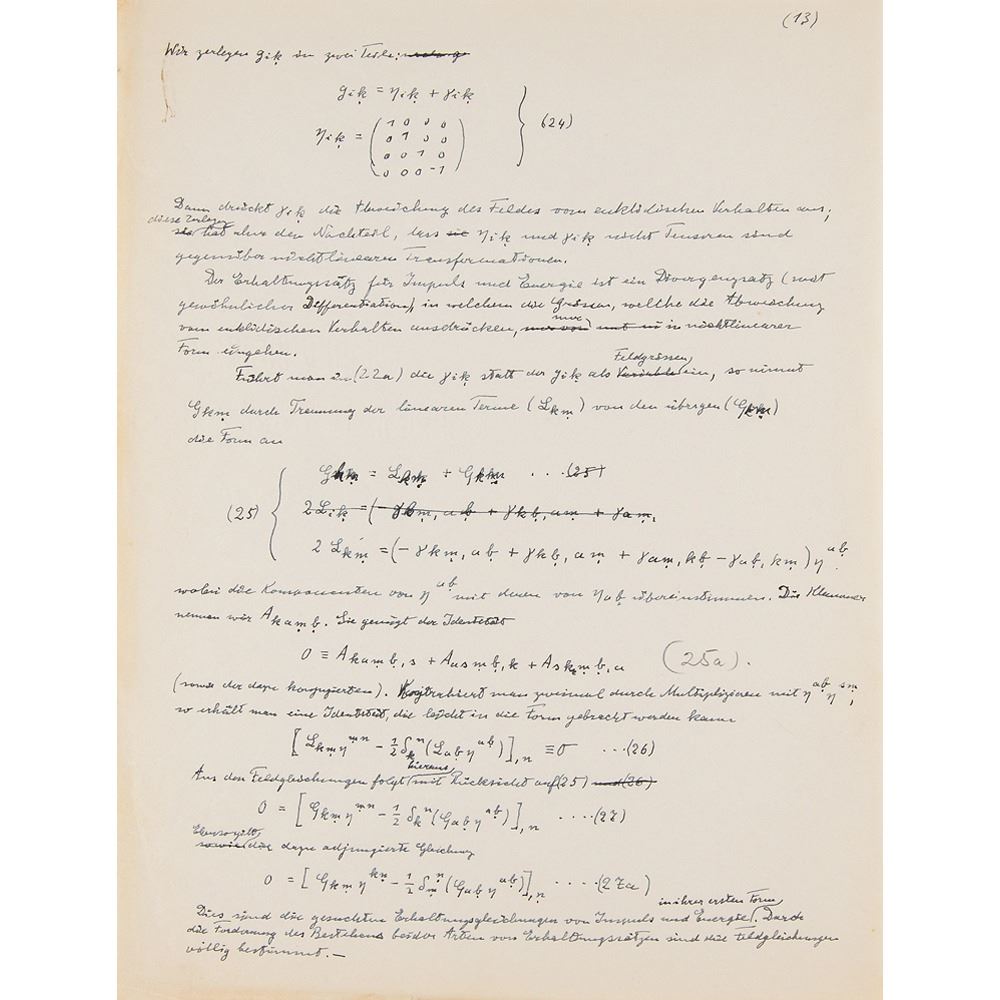 (13)
Wir zerlegen gik in zwei Teile:
gik = ηik + γik
ηik = (1 0 0 0
0 1 0 0
0 0 1 0
0 0 0 -1) } (24)
Dann drückt γik die Abweichung des Feldes vom euklidischen Verhalten aus;
diese Zerlegung
hat aber den Nachteil, dass sie ηik und γik nicht Tensoren sind
gegenüber nichtlinearen Transformationen.
Der Erhaltungssatz für Impuls und Energie ist ein Divergenzsatz (mit
gewöhnlicher Differentiation), in welchem die Grössen, welche die Abweichung
nur
vom euklidischen Verhalten ausdrücken, in nichtlinearer
Form eingehen.
Feldgrössen
Führt man in (22a) die γik statt der gik als Variable ein, so nimmt
Gkm durch Trennung der linearen Terme (Lkm) von den übrigen (Gkm)
die Form an
Gkm = Lkm + Gkm . . . (25)
(25) { 2Lik = (-γkm, ab + γkb, am + γam,
2Lkm = (-γkm, ab + γkb, am + γam, kb - γab, km) η^ab.
wobei die Komponenten von η^ab mit denen von ηab übereinstimmen. Die Klammer
nennen wir Akamb. Sie genügt der Identität
0 ≡ Akamb, s + Aasmb, k + Askmb, a (25a).
(sowie der dazu konjugierten). Kontrahiert man zweimal durch Multiplizieren mit η^ab η^sm,
so erhält man eine Identität, die leicht in die Form gebracht werden kann
[Lkm η^mn - 1/2 δk^n (Lab η^ab)], n ≡ 0 ...(26)
hieraus
Aus den Feldgleichungen folgt mit Rücksicht auf (25) und (26)
0 = [Gkm η^mn - 1/2 δk^n (Gab η^ab)], n ....(27)
Ebenso gilt
sowie die dazu adjungierte Gleichung
0 = [Gkm η^kn - 1/2 δm^n (Gab η^ab)], n ....(27a)
in ihrer ersten Form
Dies sind die gesuchten Erhaltungsgleichungen von Impuls und Energie. Durch
die Forderung des Bestehens beider Arten von Erhaltungssätzen sind die Feldgleichungen
völlig bestimmt. —